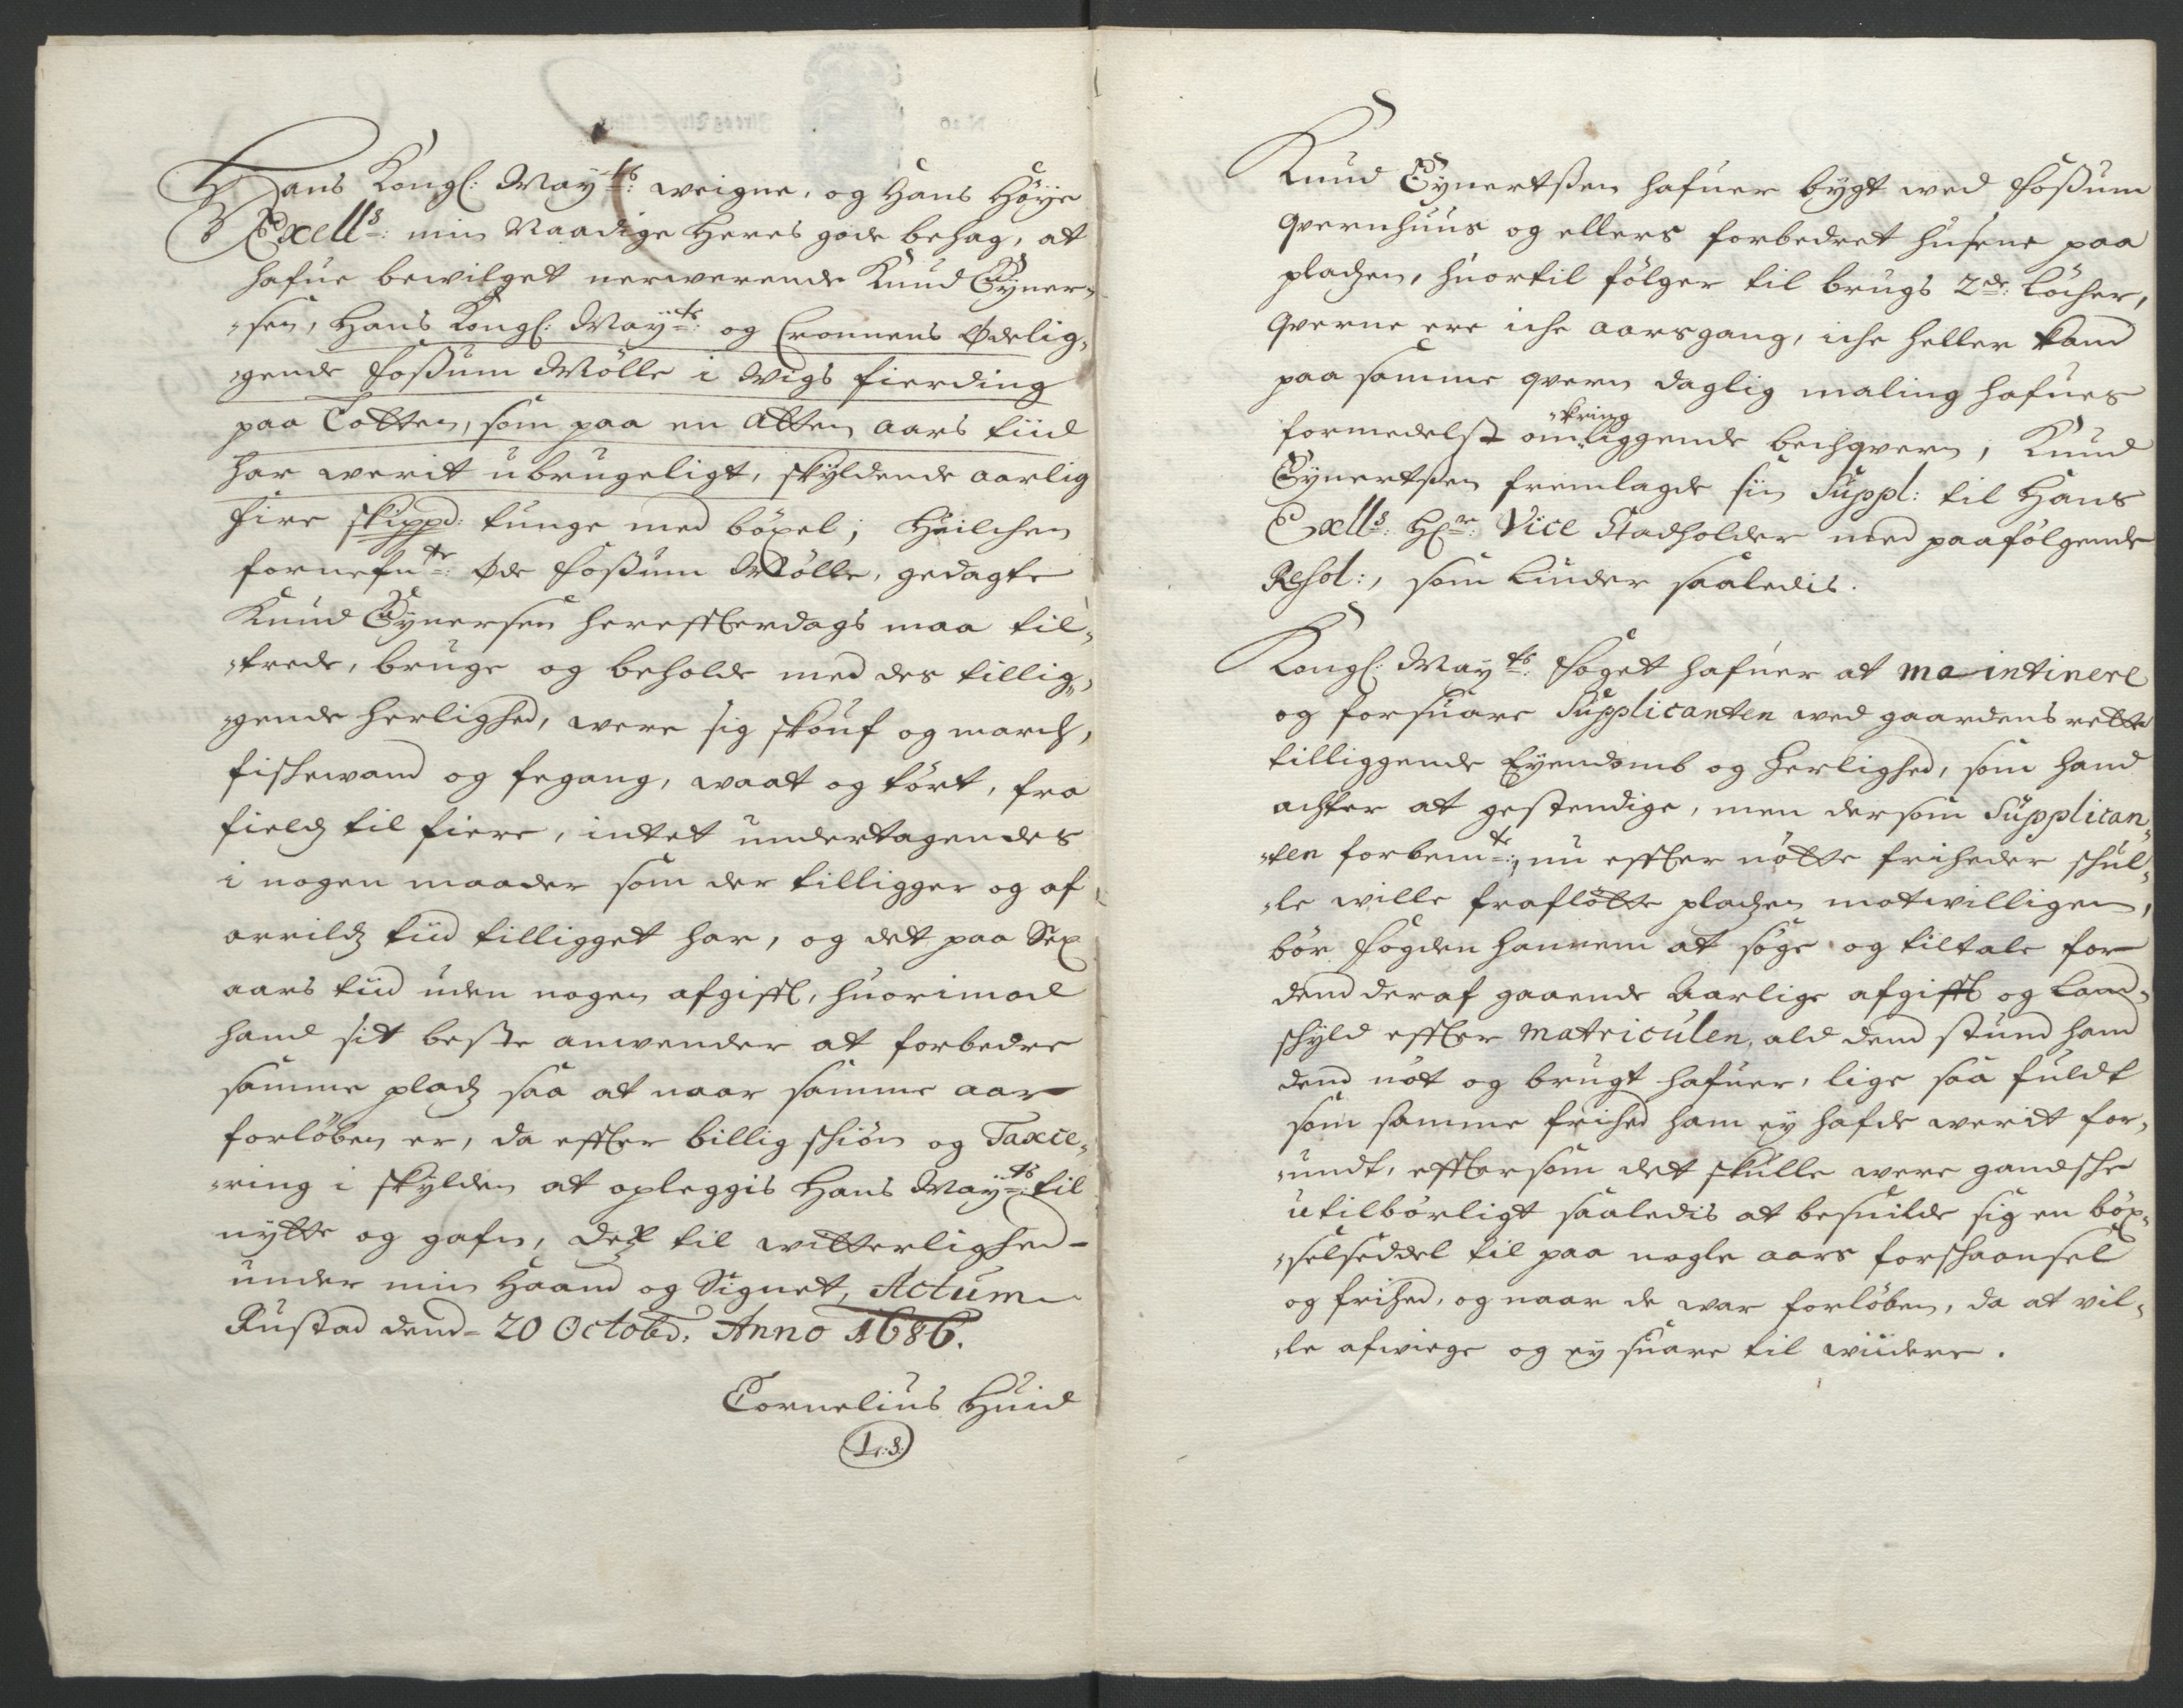 Hans Kongl: May:ts: weigne, og Hans Höÿe
Excell:s: min Naadige Herres gode behag, at
hafue bewilget nerwerende Knud Eÿner„
„sen, Hans Kongl: Maÿts: og Cronnens Ødelig„
„gende Foßum Mölle i Wigs fierding
paa Totten, som paa en Atten aars tiid
har werit ubrugeligt, skÿldende aarlig
fire skippd: tunge med böxel; Huilchen
fornefnte: Øde Foßum Mölle, gedagte
Knud Eÿnersen hereffterdags maa til„
„trede, bruge og beholde med des tillig„
„gende herlighed, were sig skouf og march,
fiskewand og fegang, waat og tört, fra
field til fiere, intet undertagendes
i nogen maader som der tilligger og af
arrilds tiid tilligget har, og det paa Sex
aars tiid uden nogen afgifft, huorimod
hand sit beste anwender at forbedre
samme plads saa at naar samme aar
forlöben er, da effter billig schiön og Taxie„
„ring i skÿlden at opleggis Hans Maÿts: til
nÿtte og gafn, Dets til witterlighed
under min Haand og Signet, Actum
Rustad dend 20 Octobr: Anno 1686.
Cornelius Huid
L:S:
Knud Eÿnertßen hafuer bÿgt wed Foßum
qvernhuus og ellers forbedret husene paa
pladsen, huortil fölger til brugs 2de: Löcher,
Qverne ere iche aarsgang, iche heller kand
paa samme qvern daglig maling hafues
formedelst om„kringliggende bechqvern, Knud
Eÿnertßen fremlagde siin Suppl: til Hans
Exells: Hr: Vice Stadholder med paafölgende
Resol:, som liuder saaledis.
Kongl: Maÿts: Foget hafuer at maintinere
og forsuare Supplicanten wed gaardens rette
tilliggende Eÿendomb og Herlighed, som hand
achter at gestendige, men dersom Supplican„
„ten forbemte:, nu effter nötte friheder schul„
„le wille fraflötte pladsen motwilligen,
bör Fogden hannem at söge og tiltale for
dend deraf gaaende Aarlige afgifft og Land„
schÿld effter Matriculen, ald dend stund hand
dend nöt og brugt hafuer, lige saa fuldt
som samme frihed ham eÿ hafde werit for„
„undt, efftersom det skulle were gandsche
utilbörligt saaledis at besuilde sig en böx„
„selseddel til paa nogle aars forschaansel
og frihed, og naar de war forlöben, da at vil„
„le afwiege og eÿ suare til wiidere.